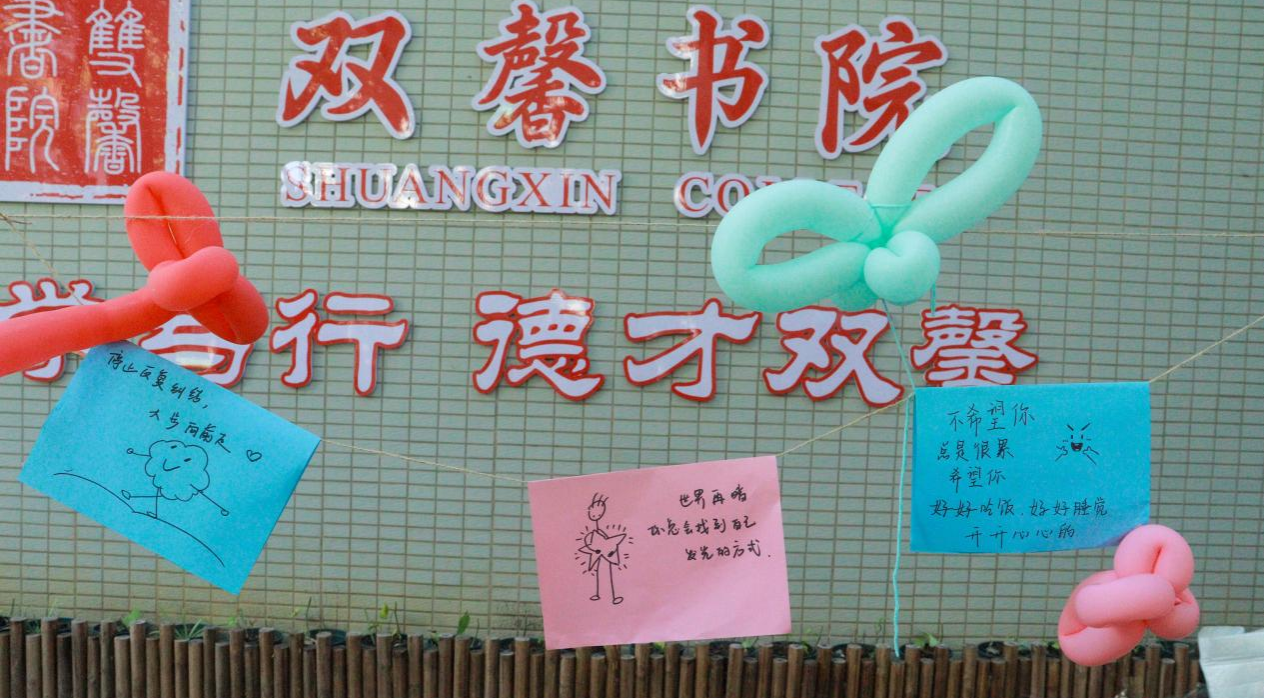 雙馨
書院
双馨书院
SHUANGXIN
行 德才双馨
停止反复纠结,
大步向前走
世界再暗
你总会找到自己
发光的方式.
不希望你
总是很累
希望你
好好吃饭、好好睡觉
开开心心的